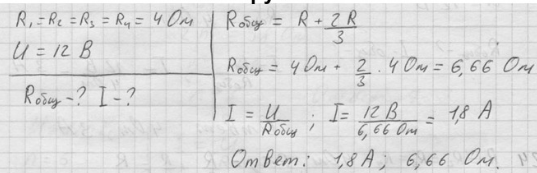 R₁ = R₂ = R₃ = R₄ = 4 Ом
U = 12 В
Rобщ - ? I - ?
Rобщ = R + 2R/3
Rобщ = 4 Ом + 2/3 · 4 Ом = 6,66 Ом
I = U/Rобщ ; I = 12 В/6,66 Ом = 1,8 А
Ответ: 1,8 А; 6,66 Ом.